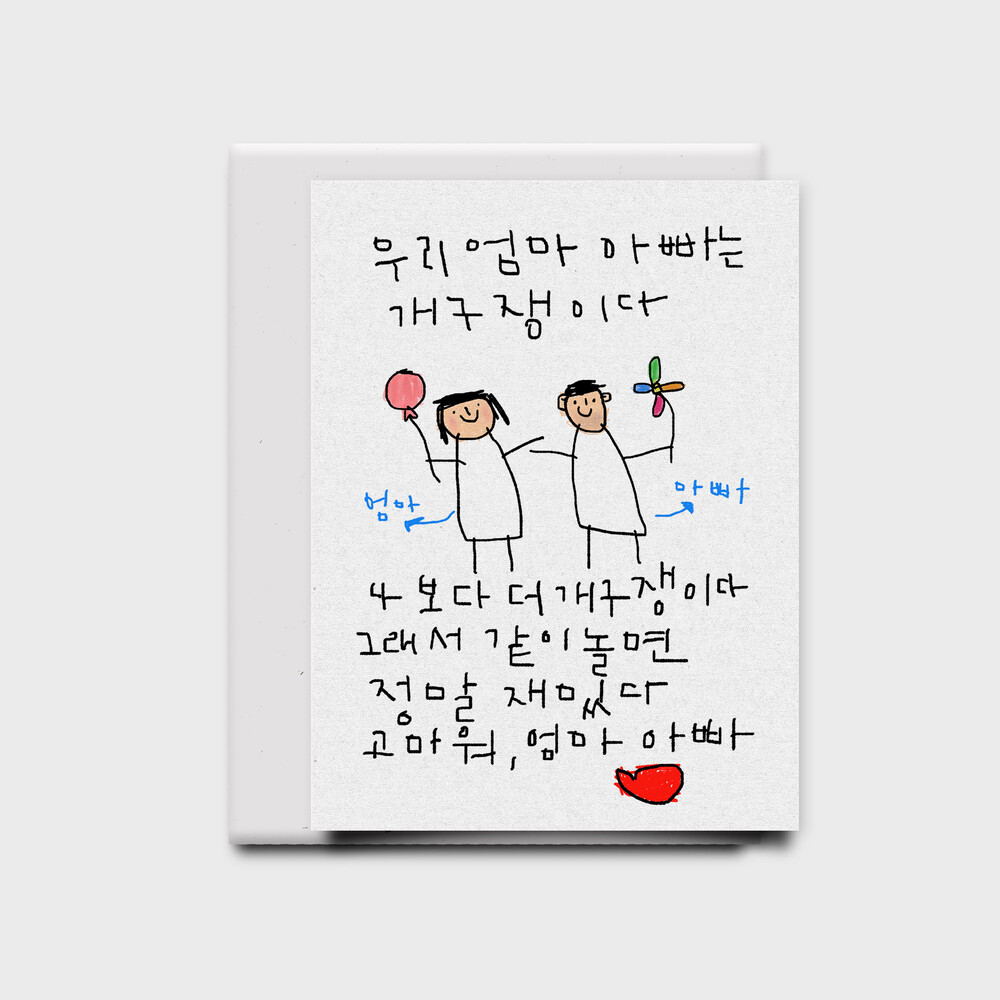 우리 엄마 아빠는
개구쟁이다
엄마
아빠
나 보다 더 개구쟁이다
그래서 같이 놀면
정말 재밌다
고마워, 엄마 아빠